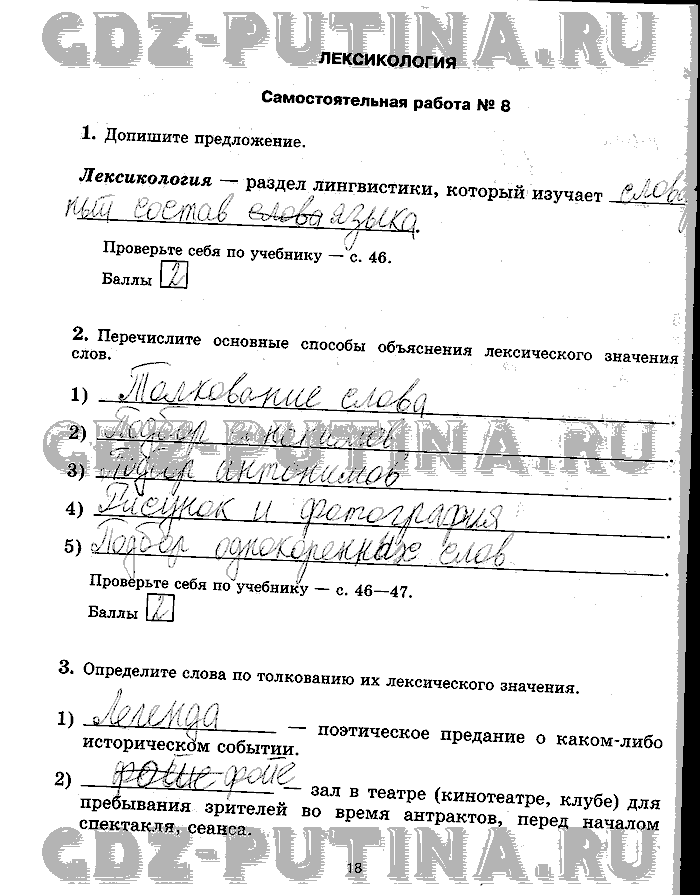 GDZ-PUTINA.RU
ЛЕКСИКОЛОГИЯ
Самостоятельная работа № 8
1. Допишите предложение.
Лексикология — раздел лингвистики, который изучает словар
ный состав слова языка.
Проверьте себя по учебнику — с. 46.
Баллы 2
2. Перечислите основные способы объяснения лексического значения
слов.
1) Толкование слова.
2) Подбор синонимов.
GDZ-PUTINA.RU
3) Подбор антонимов.
4) Рисунок и фотография.
5) Подбор однокоренных слов.
Проверьте себя по учебнику — с. 46—47.
Баллы 2
3. Определите слова по толкованию их лексического значения.
1) Легенда — поэтическое предание о каком-либо
историческом событии.
2) фойе — зал в театре (кинотеатре, клубе) для
пребывания зрителей во время антрактов, перед началом
спектакля, сеанса.
GDZ-PUTINA.RU
18